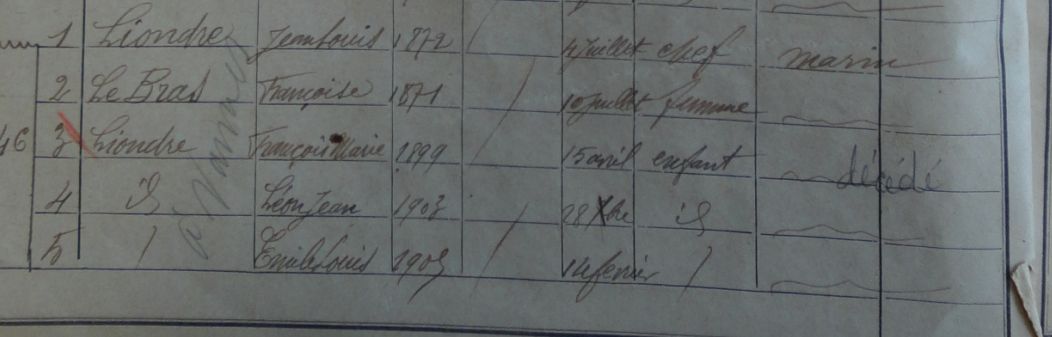 1 Liondre Jean Louis 1872 4 juillet chef marin
2 Le Bras Françoise 1871 10 juillet femme
46 3 Liondre François Marie 1899 15 avril enfant décédé
4 id Léon Jean 1903 28 Xbre id
5 / Emile Louis 1909 14 fevrier /
à Vannes